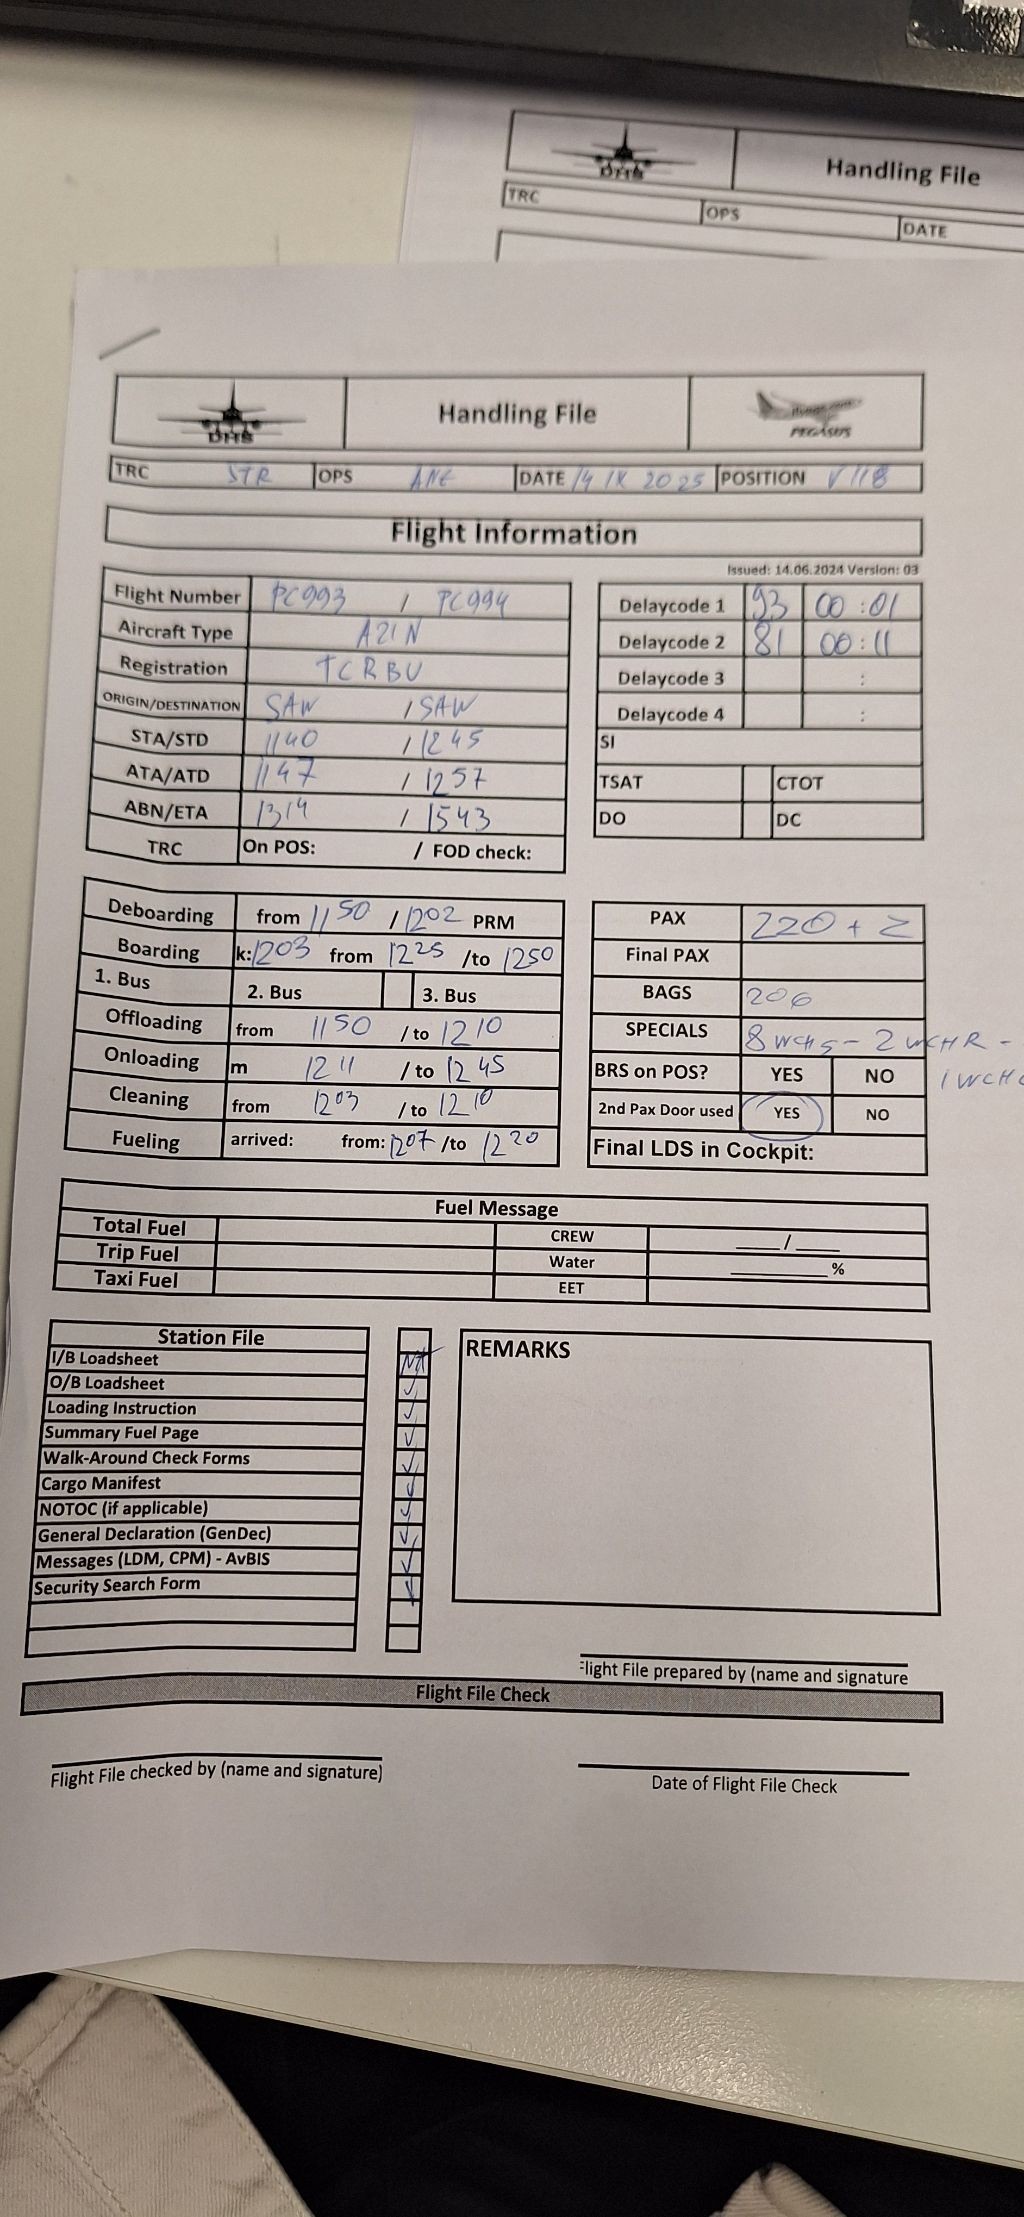 DHS Handling File
TRC OPS DATE
DHS Handling File PEGASUS
TRC STR OPS ANE DATE 14 IX 2025 POSITION V118
Flight Information
Issued: 14.06.2024 Version: 03
Flight Number PC993 / PC994
Aircraft Type A21N
Registration TCRBU
ORIGIN/DESTINATION SAW / SAW
STA/STD 1140 / 1245
ATA/ATD 1147 / 1257
ABN/ETA 1314 / 1543
TRC On POS: / FOD check:
Delaycode 1 93 00:01
Delaycode 2 81 00:11
Delaycode 3 :
Delaycode 4 :
SI
TSAT CTOT
DO DC
Deboarding from 1150 / 1202 PRM
Boarding k:1203 from 1225 /to 1250
1. Bus 2. Bus 3. Bus
Offloading from 1150 / to 1210
Onloading m 1211 / to 1245
Cleaning from 1203 / to 1210
Fueling arrived: from: 1207 /to 1220
PAX 220 + 2
Final PAX
BAGS 206
SPECIALS 8 WCHS - 2 WCHR -
BRS on POS? YES NO 1 WCHC
2nd Pax Door used YES NO
Final LDS in Cockpit:
Fuel Message
Total Fuel CREW ___/___
Trip Fuel Water ______%
Taxi Fuel EET
Station File
I/B Loadsheet
O/B Loadsheet ✓
Loading Instruction ✓
Summary Fuel Page ✓
Walk-Around Check Forms ✓
Cargo Manifest ✓
NOTOC (if applicable) ✓
General Declaration (GenDec) ✓
Messages (LDM, CPM) - AvBIS ✓
Security Search Form ✓
REMARKS
Flight File prepared by (name and signature
Flight File Check
Flight File checked by (name and signature)
Date of Flight File Check